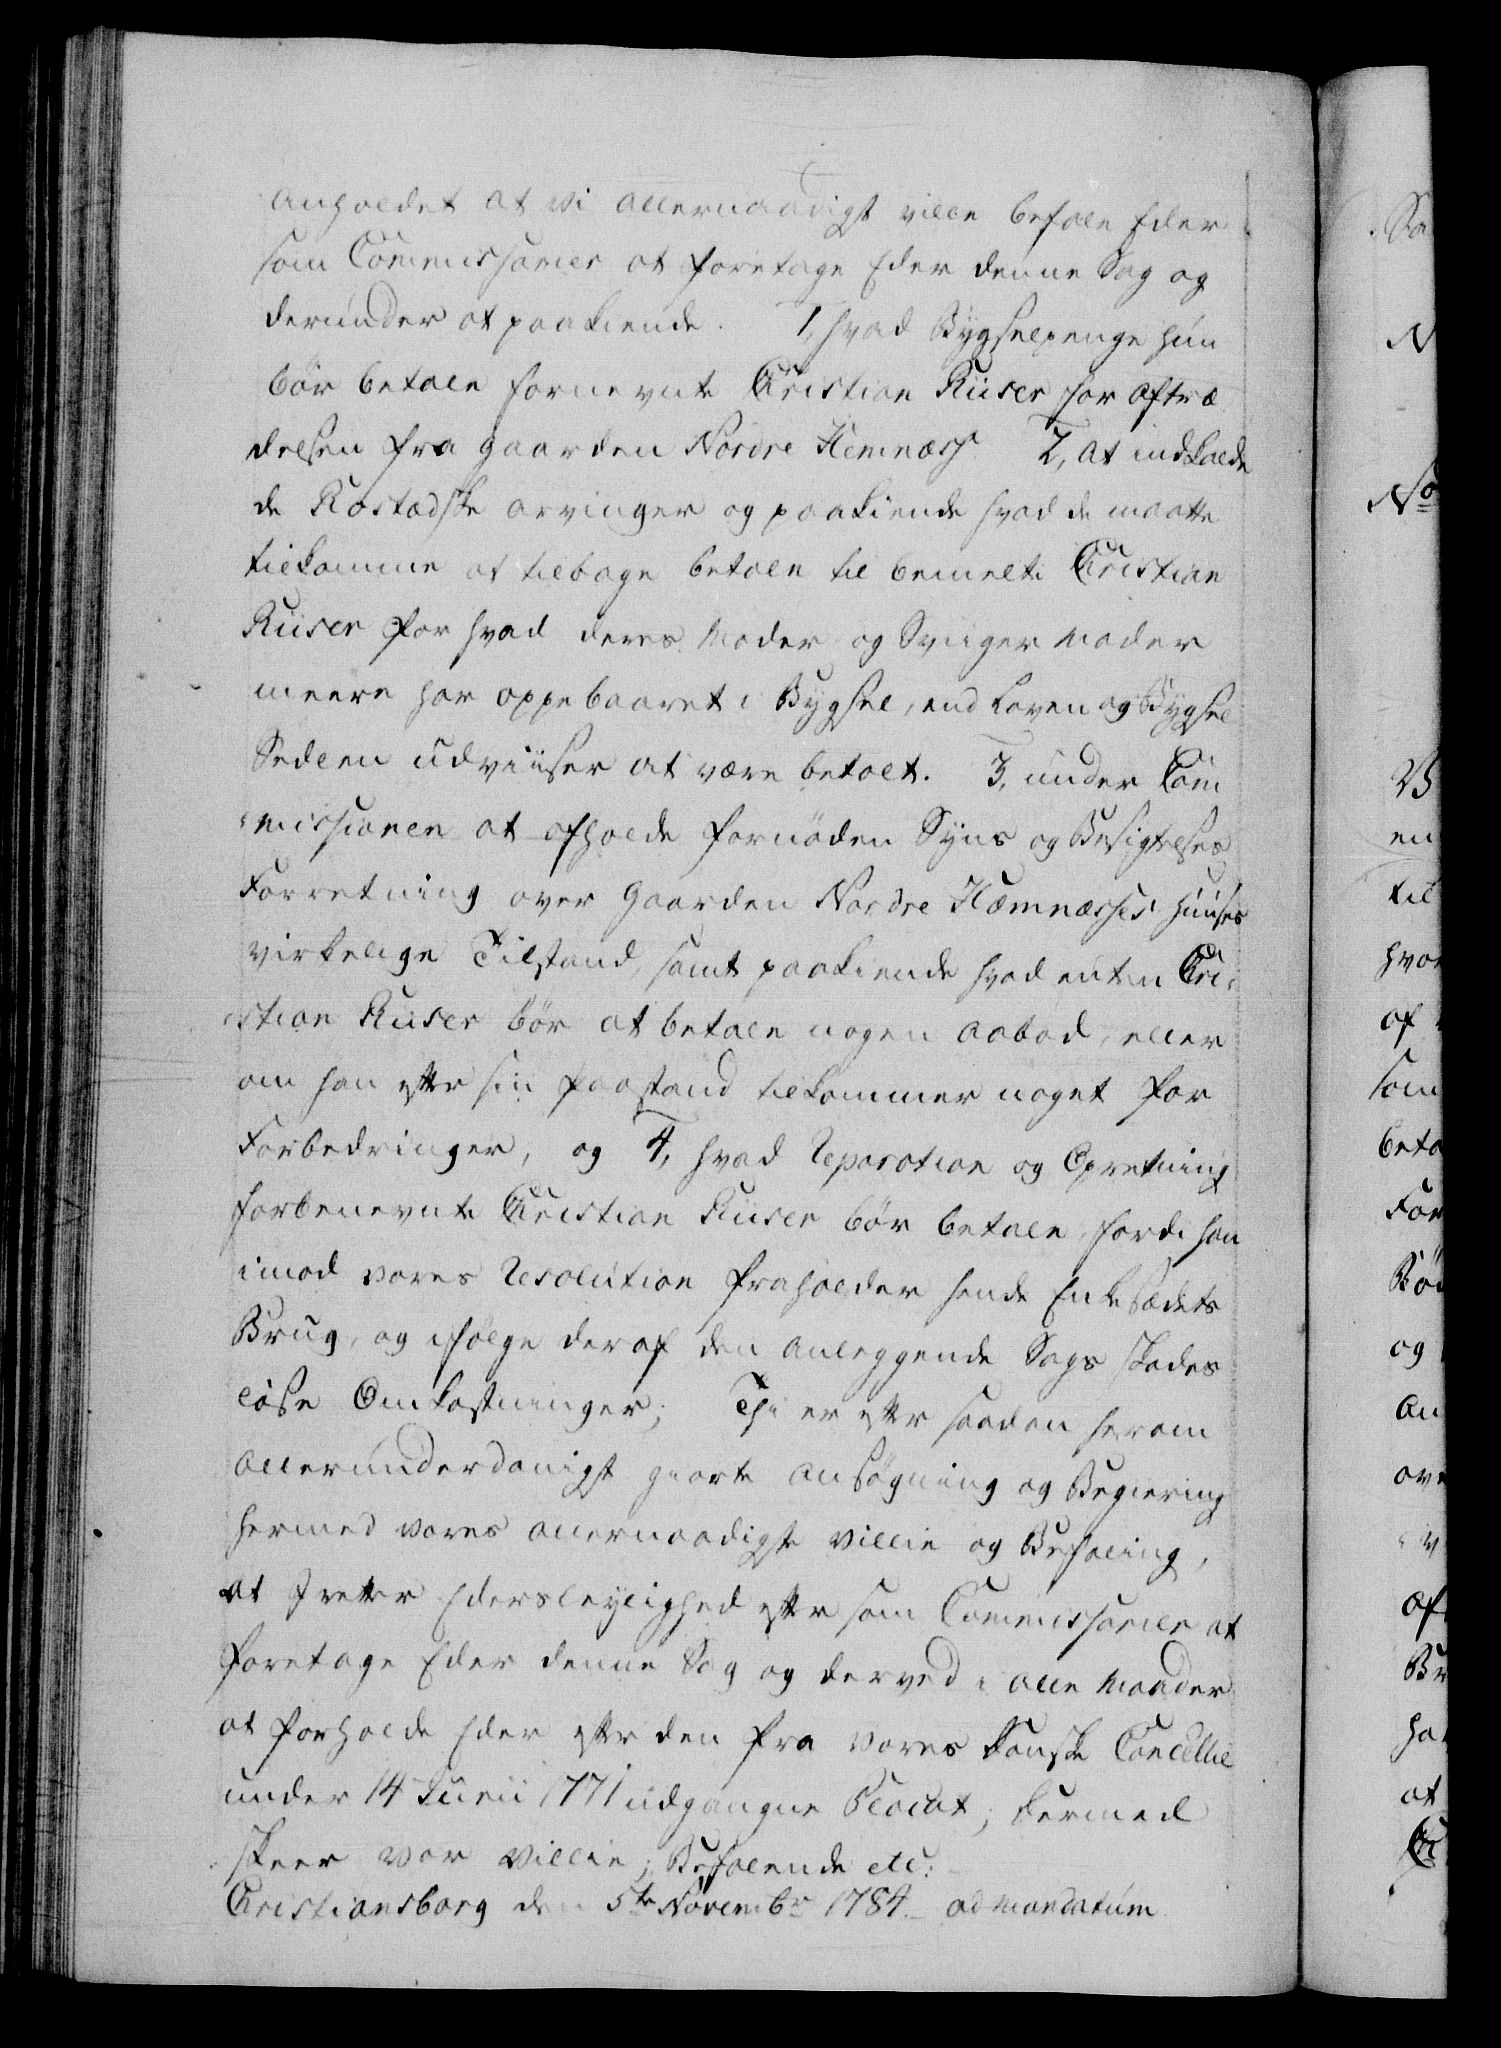 anholdet at Vi allernaadigst ville befale Eder
som Commissarier at foretage Eder denne Sag og
derunder at paakiende. 1, hvad Bygselpenge hun
bör betale fornevnte Christian Riiser for Aftræ
delsen fra Gaarden Nordre Hemnæss 2, At indkalde
de Rostadske Arvinger og paakiende hvad de maatte
tilkomme at tilbage betale til bemelte Christian
Riiser for hvad deres Moder og Sviigermoder
meere har oppebaaret i Bygsel, end Loven og Bygsel
Sedlen udviiser at være betalt. 3, under Com
missionen at afholde fornöden Syns og Besigtelses
Forretning over Gaarden Nordre Hæmnæsses Huuses
virkelige Tilstand, samt paakiende hvad enten Chri
stian Riiser bör at betale nogen Aabod, eller
om han efter sin Paastand tilkommer noget for
Forbedringer, og 4, hvad Reparation og Opretning
forbenevnte Christian Riiser bör betale, fordi han
imod vores Resolution fraholder hende Enkesædets
Brug, og ifölge deraf den anleggende Sags skades
löse Omkostninger; Thi er efter saadan herom
allerunderdanigst giorte Ansögning og Begiering
hermed vores allernaadigste Villie og Befaling,
at I retter Eders Leylighed efter som Commissarier at
foretage Eder denne Sag og derved i alle Maader
at forholde Eder efter den fra vores Danske Cancellie
under 14 Junii 1771 udgangne Placat; dermed
skeer vor Villie; Befalende etc:
Christiansborg den 5te Novembr 1784 ad mandatum